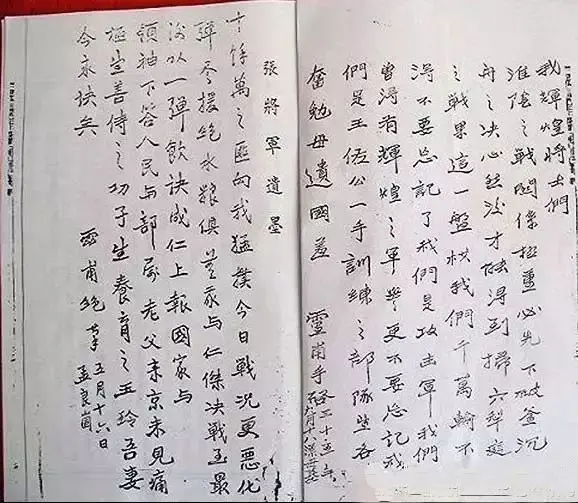 我輝煌將士們
淮陰之戰關係極重必先下破釜沉
舟之決心然後才能得到掃穴犂庭
之戰果這一盤棋我們千萬輸不
得不要忘記了我們是攻击軍我們
曾得有輝煌之軍譽更不要忘記我
們是王佐公一手訓練之部隊望各
奮勉毋遺國羞
靈甫手啓三十五年
九月十八深
張將軍遺墨
十餘萬之匪向我猛撲今日戰況更惡化
彈尽援絶水糧俱無我与仁傑決戰至最
後以一彈飲訣成仁上報國家与
領袖下答人民与部属老父来京未見痛
極望善待之幼子望養育之玉玲吾妻
今永訣矣
靈甫絶筆
五月十六日
孟良崮